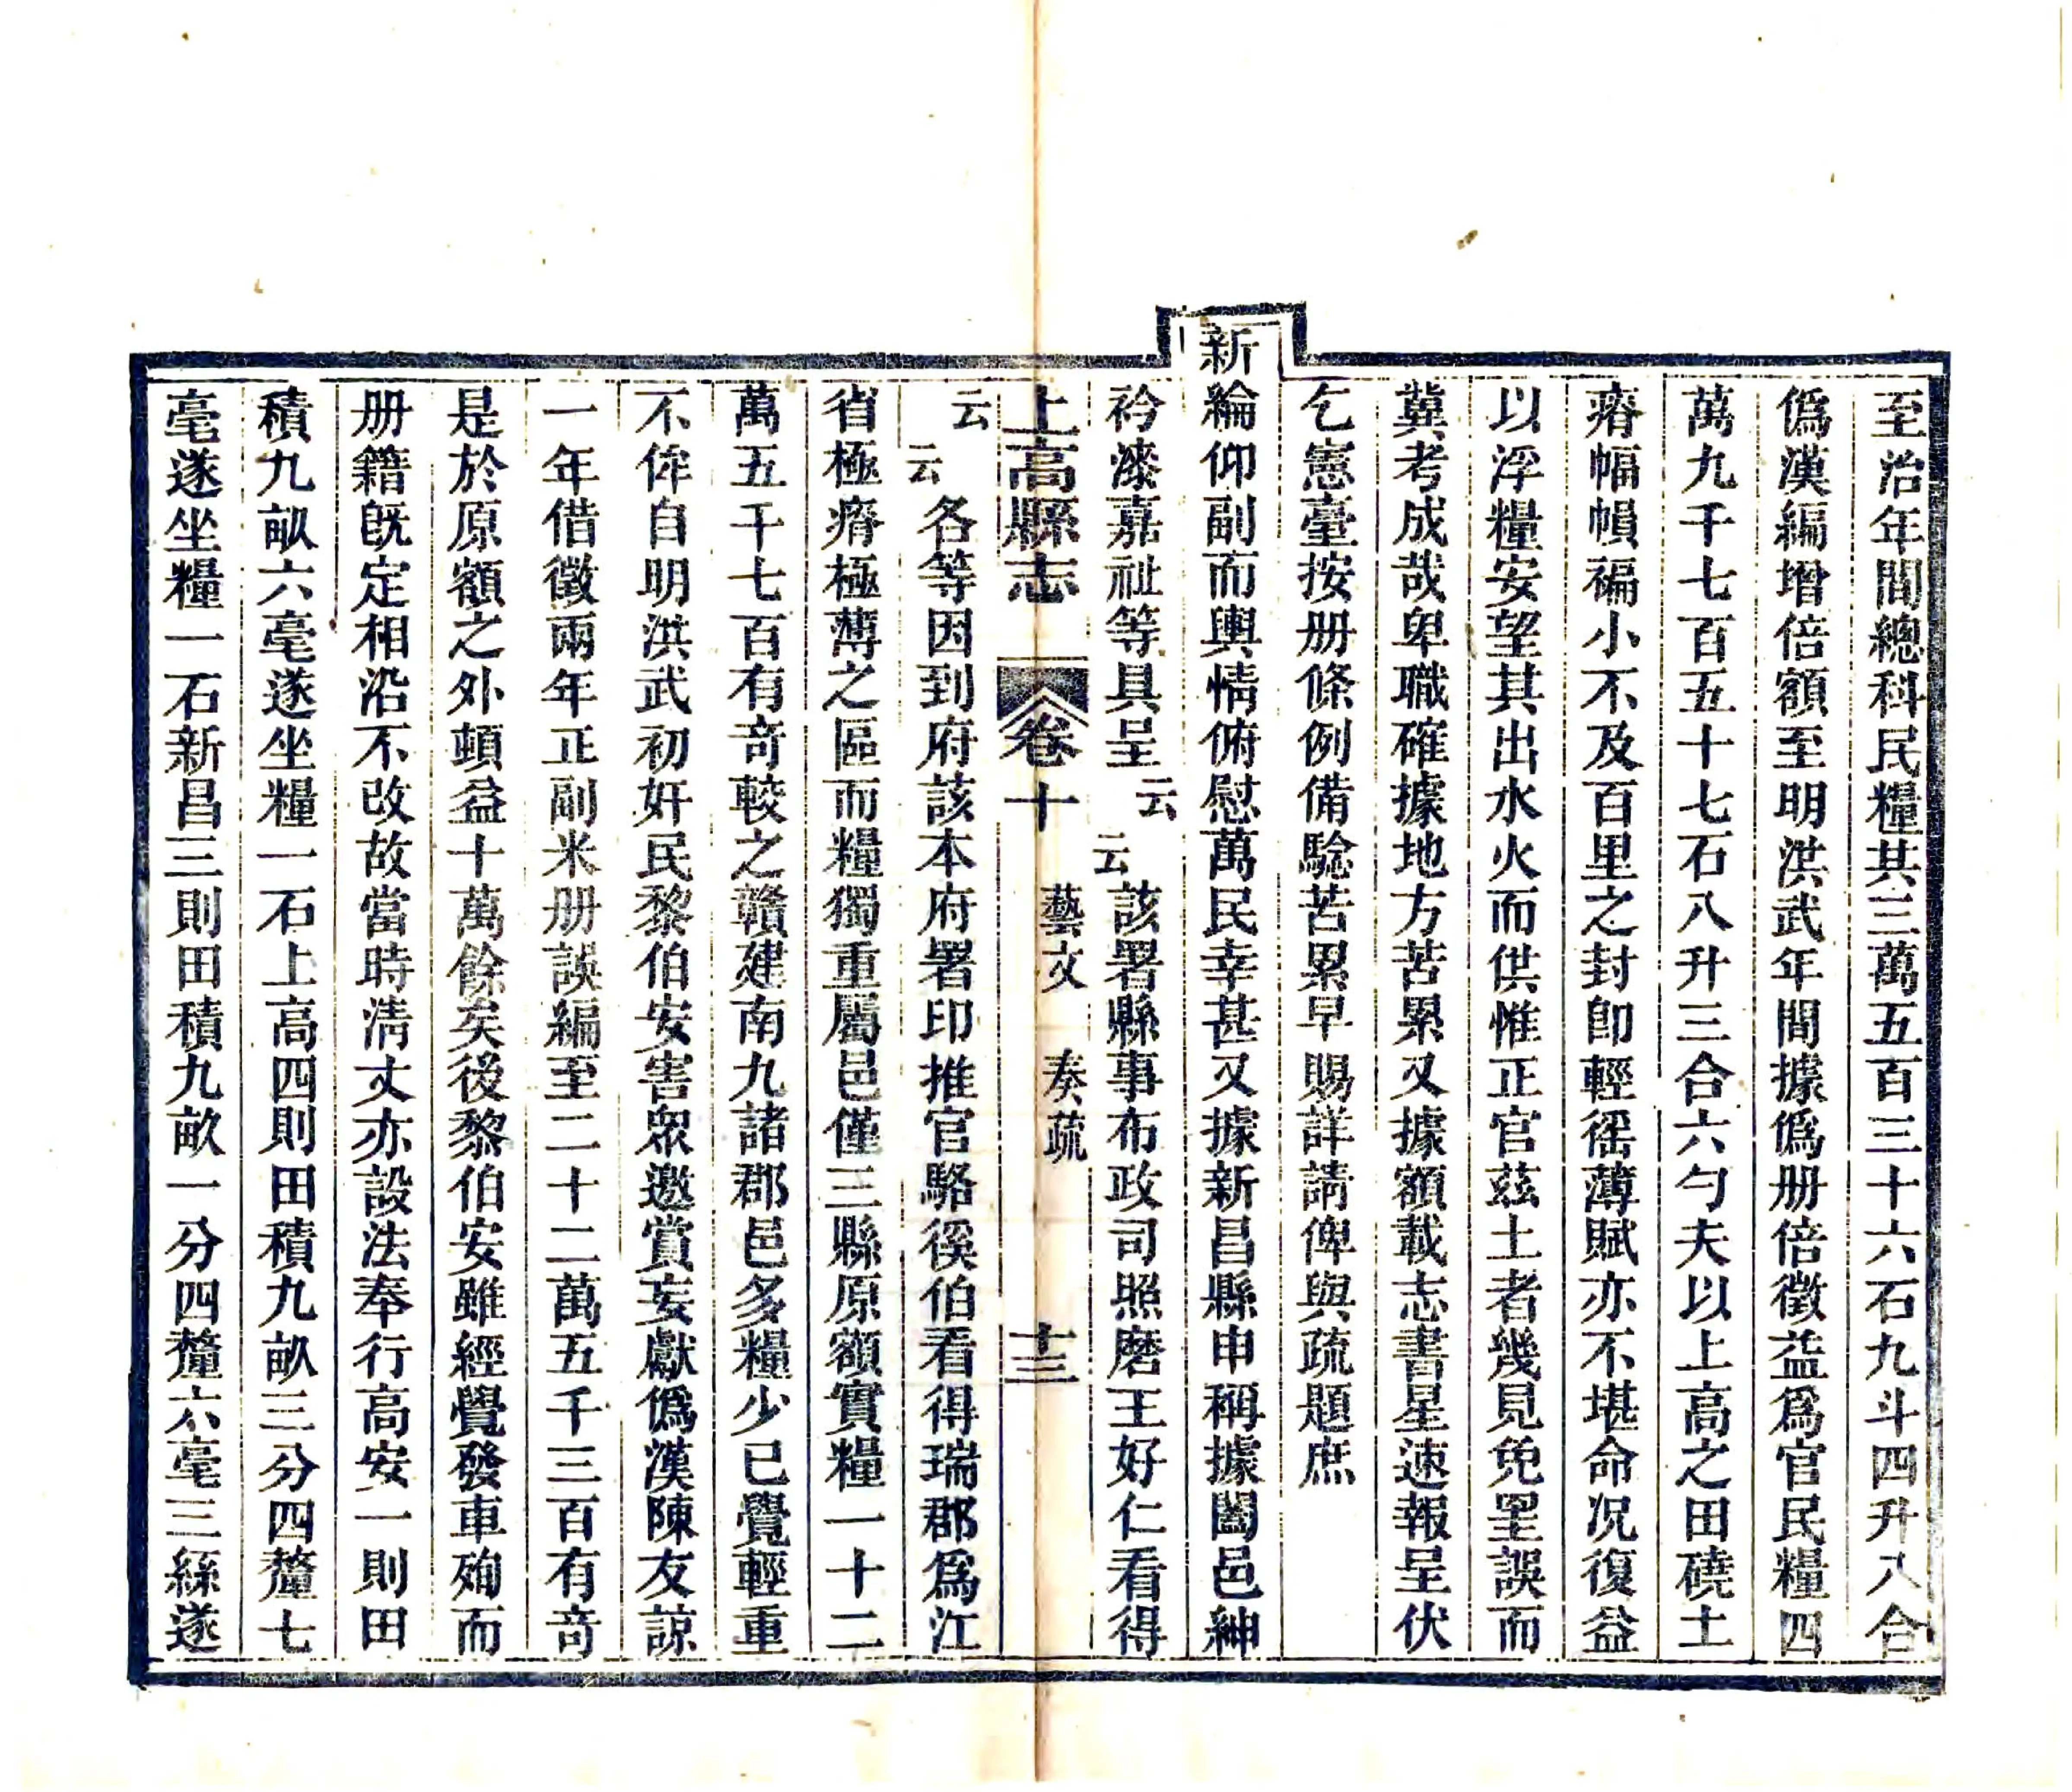 至治年間總科民糧共三萬五百三十六石九斗四升八合
僞漢編增倍額至明洪武年間據僞册倍徵益爲官民糧四
萬九千七百五十七石八升三合六勺夫以上高之田磽土
瘠幅幀褊小不及百里之封卽輕徭薄賦亦不堪命况復益
以浮糧安望其出水火而供惟正官玆土者幾見免罣誤而
冀考成哉卑職確據地方苦累又據額載志書星速報呈伏
乞憲臺按册條例備騐苦累早賜詳請俾與疏題庶
新綸仰副而輿情俯慰萬民幸甚又據新昌縣申稱據闔邑紳
衿漆嘉祉等具呈云云該署縣事布政司照磨王好仁看得
上高縣志 卷十 藝文 奏疏 十三
云云各等因到府該本府署印推官駱徯伯看得瑞郡爲江
省極瘠極薄之區而糧獨重屬邑僅三縣原額實糧一十二
萬五千七百有奇較之贛建南九諸郡邑多糧少已覺輕重
不侔自明洪武初奸民黎伯安害眾邀賞妄獻僞漢陳友諒
一年借徵兩年正副米册誤編至二十二萬五千三百有奇
是於原額之外頓益十萬餘矣後黎伯安雖經覺發車殉而
册籍旣定相沿不改故當時淸丈亦設法奉行高安一則田
積九畝六毫遂坐糧一石上高四則田積九畝三分四釐七
毫遂坐糧一石新昌三則田積九畝一分四釐六毫三絲遂